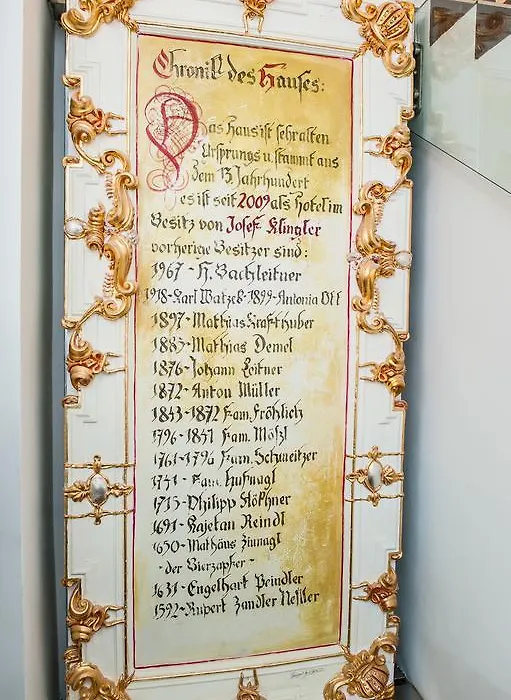 Chronik des Hauses:
Das Haus ist sehr alten
Ursprungs u. stammt aus
dem 13. Jahrhundert
es ist seit 2009 als Hotel im
Besitz von Josef Klingler
vorherige Besitzer sind:
1967 - H. Bachleitner
1918 - Karl Watzek - 1899 - Antonia Ott
1897 - Mathias Krafthuber
1883 - Mathias Demel
1876 - Johann Leitner
1872 - Anton Müller
1843-1872 Fam. Fröhlich
1796 - 1841 Fam. Mößl
1761-1796 Fam. Schweitzer
1741 - Fam. Hufnagl
1715 - Philipp Stökhner
1691 - Kajetan Reindl
1650 - Mathäus Zinnagl
- der Bierzapfer -
1631 - Engelhart Peindler
1592 - Rupert Zandler